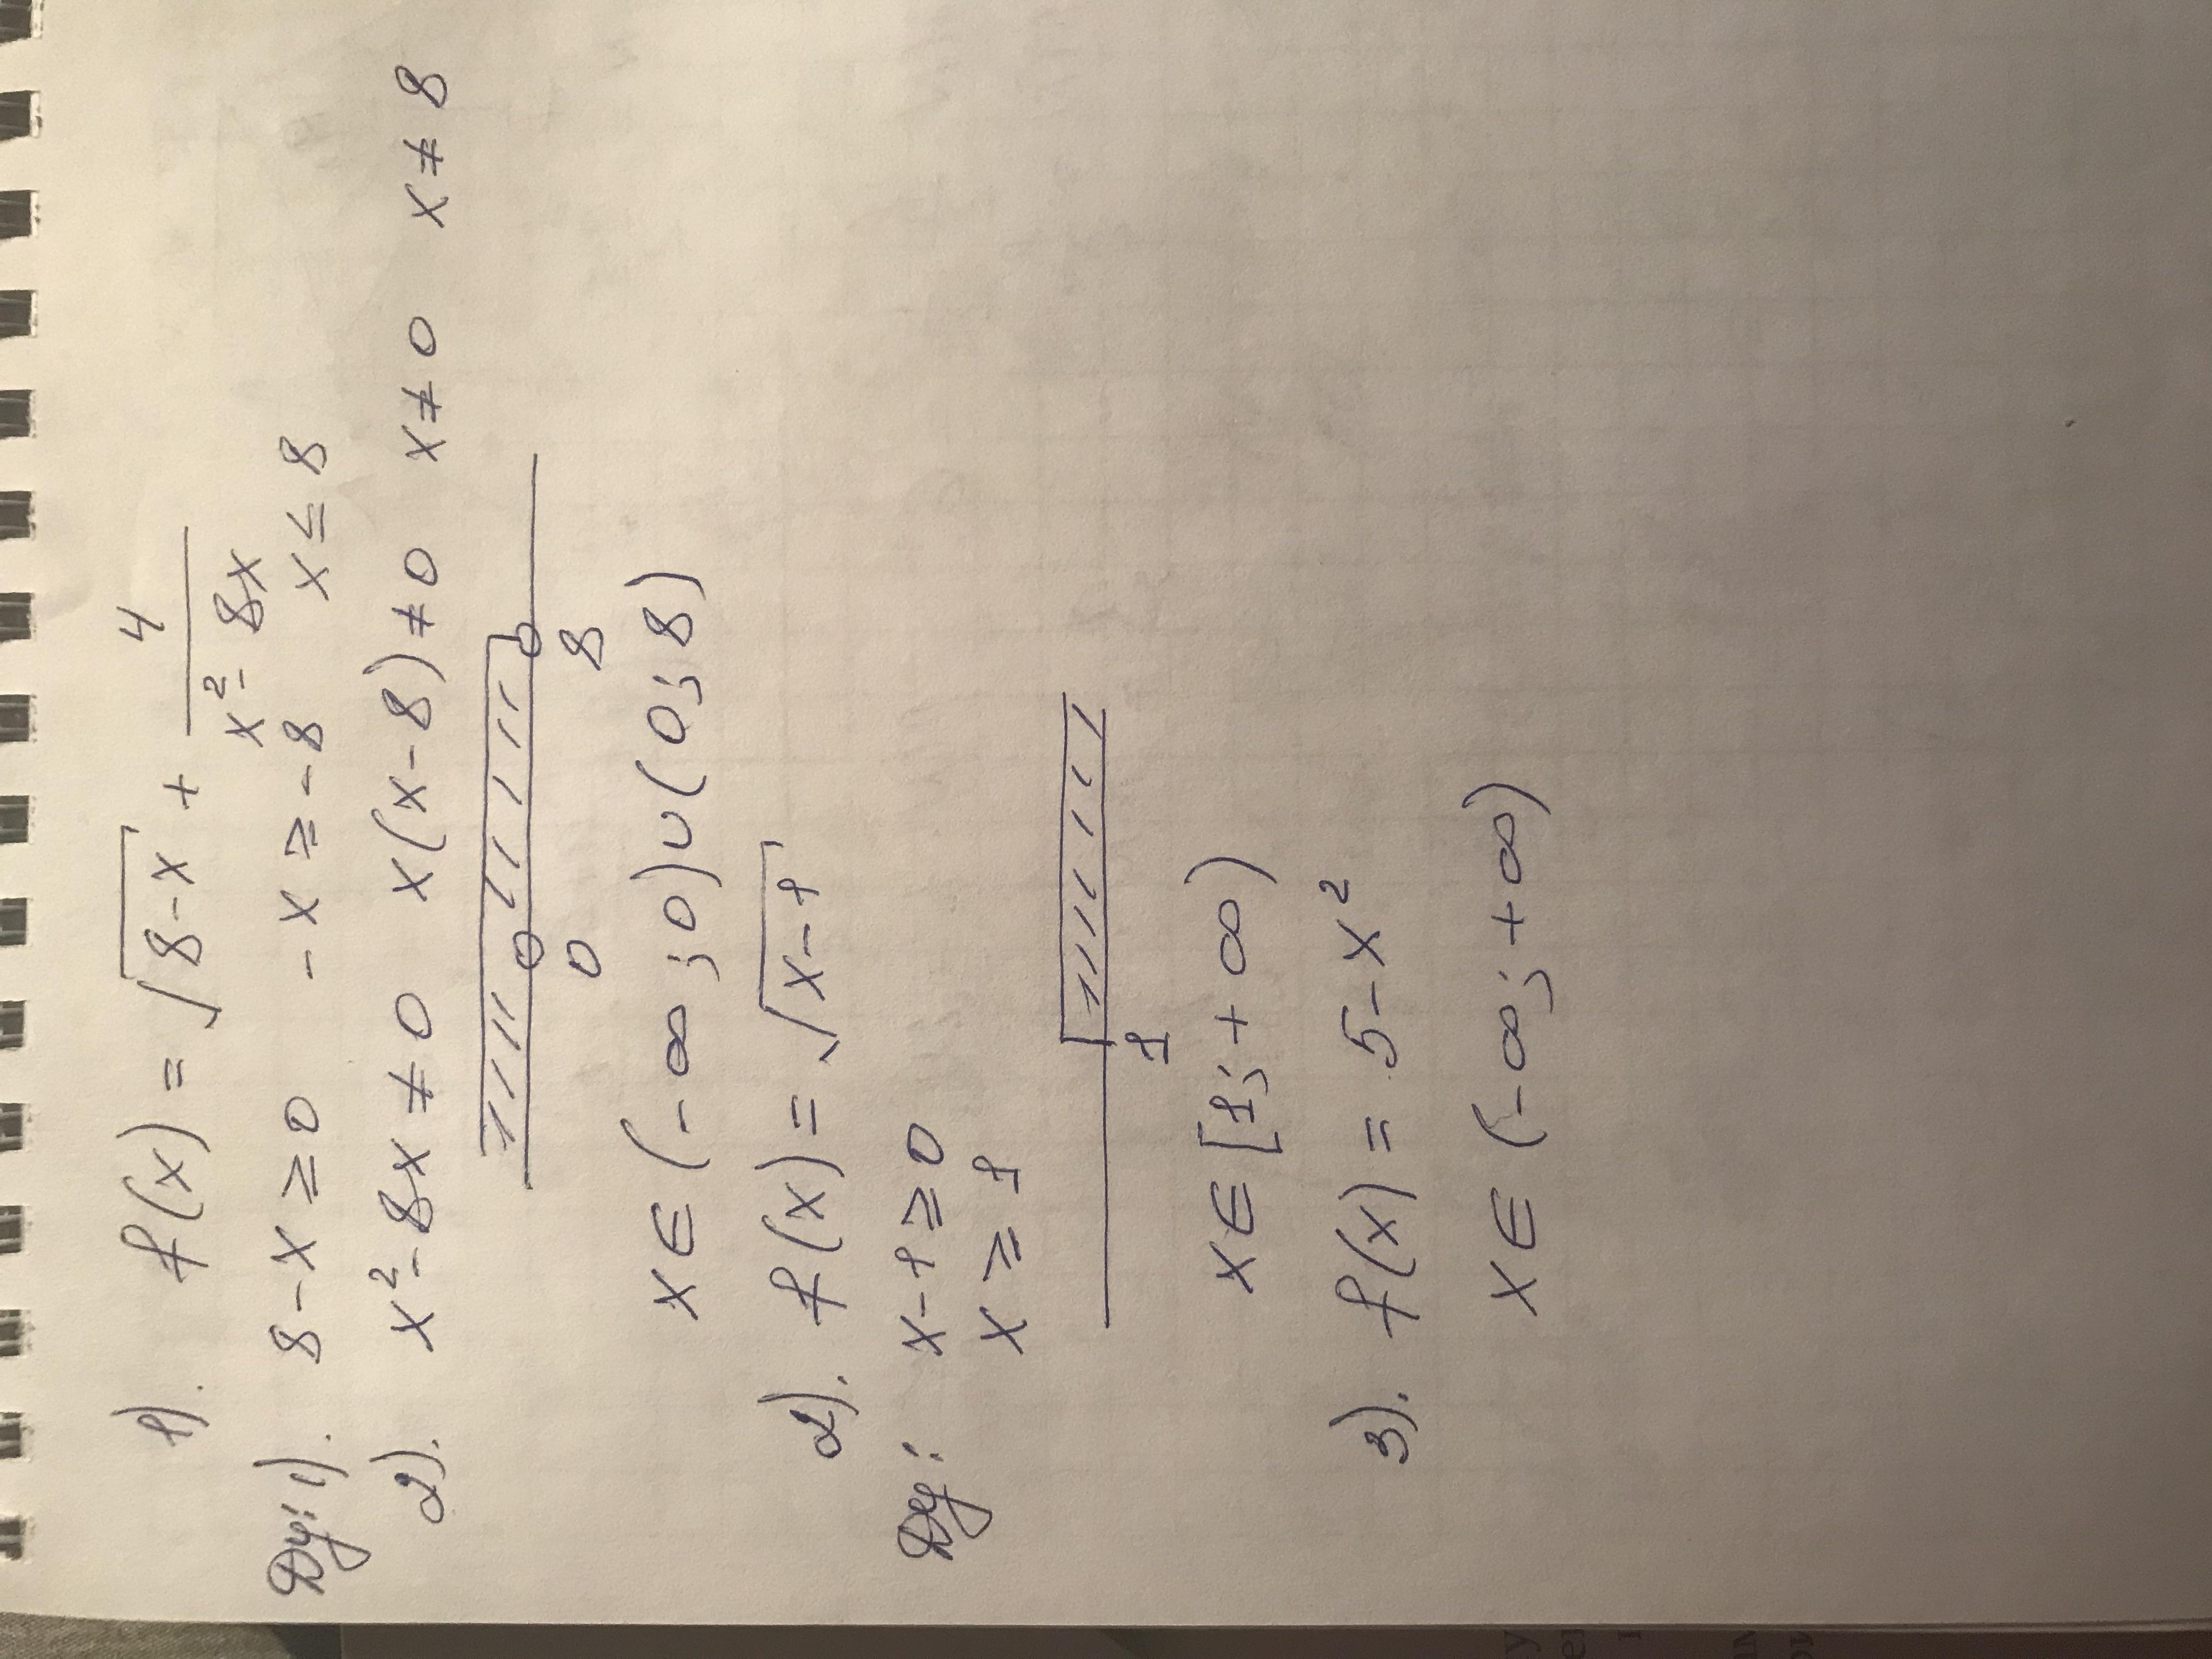 1). f(x) = √(8-x) + 4/(x² - 8x)
Dy: 1). 8-x ≥ 0 -x ≥ -8 x ≤ 8
2). x² - 8x ≠ 0 x(x-8) ≠ 0 x ≠ 0 x ≠ 8
0 8
x ∈ (-∞; 0) ∪ (0; 8)
2). f(x) = √(x-1)
Dy: x-1 ≥ 0
x ≥ 1
1
x ∈ [1; +∞)
3). f(x) = 5 - x²
x ∈ (-∞; +∞)